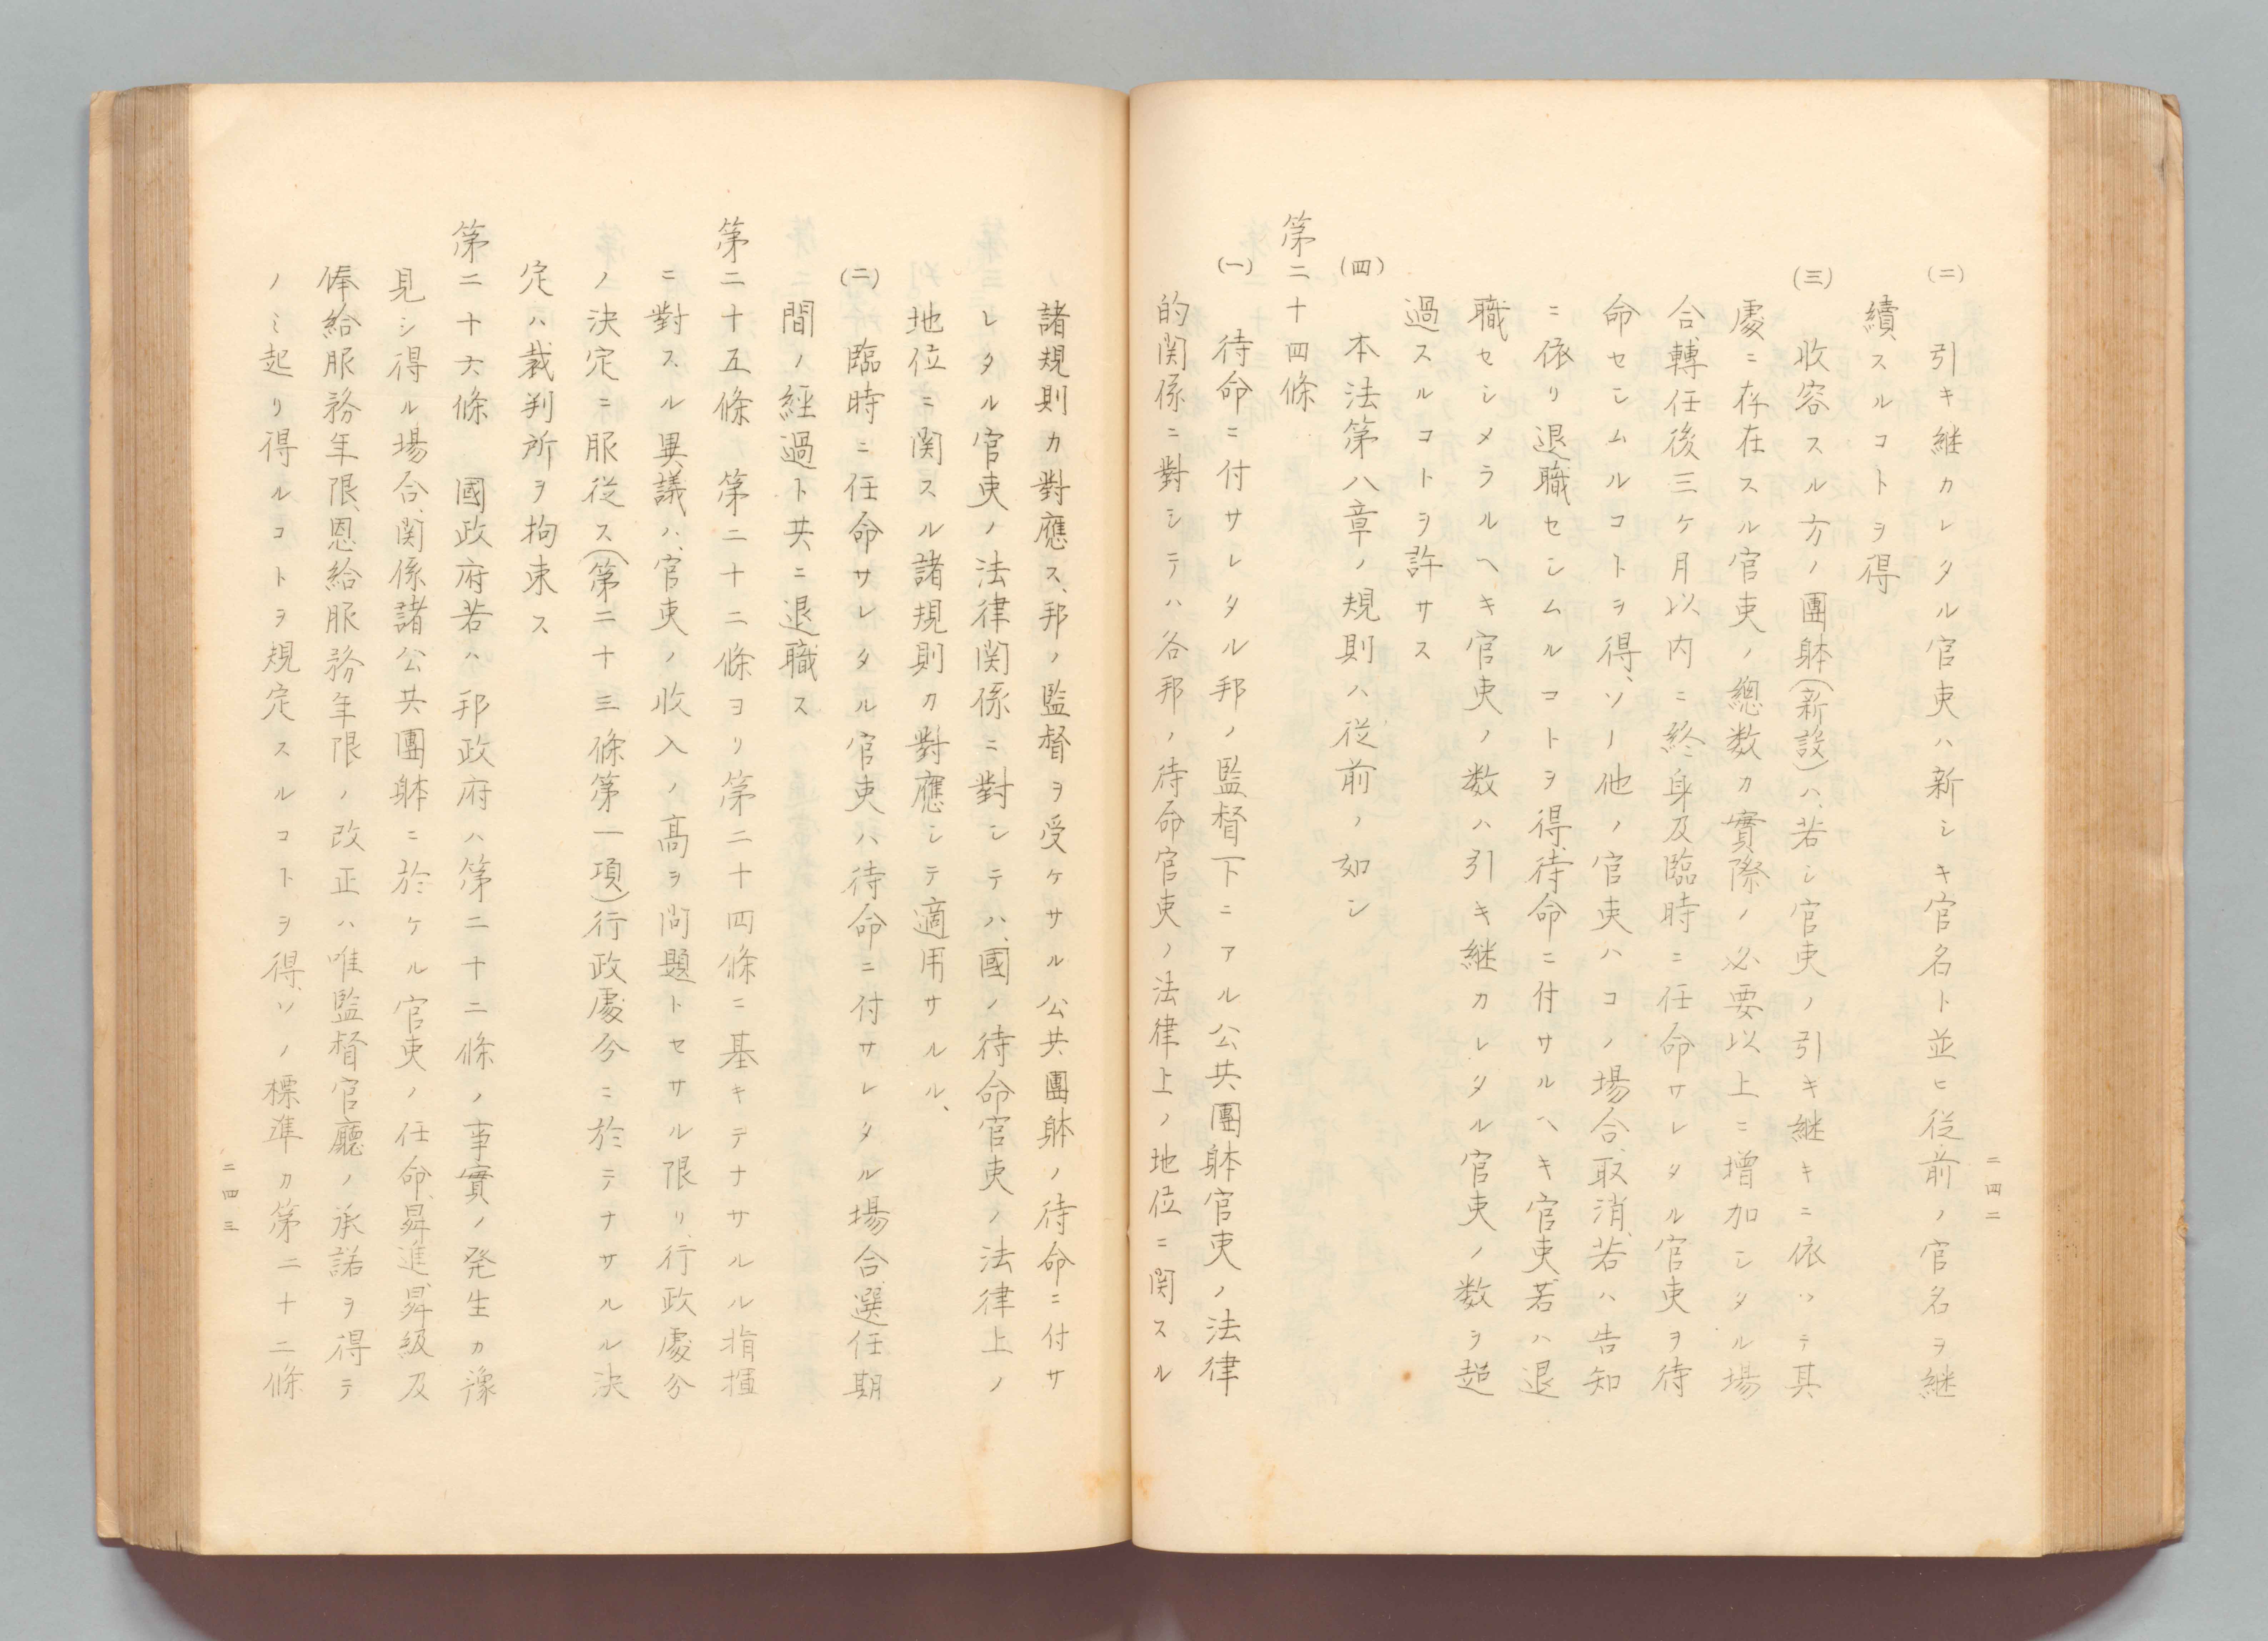 二四二
(二) 引キ継カレタル官吏ハ新シキ官名ト並ヒ従前ノ官名ヲ継
續スルコトヲ得
(三) 收容スル方ノ團躰(新設)ハ、若シ官吏ノ引キ継キニ依ッテ其
處ニ存在スル官吏ノ總数カ實際ノ必要以上ニ増加シタル場
合、轉任後三ケ月以内ニ終身及臨時ニ任命サレタル官吏ヲ待
命セシムルコトヲ得、ソノ他ノ官吏ハコノ場合、取消、若ハ告知
ニ依リ退職セシムルコトヲ得、待命ニ付サルヘキ官吏、若ハ退
職セシメラルヘキ官吏ノ数ハ引キ継カレタル官吏ノ数ヲ超
過スルコトヲ許サス
(四) 本法第八章ノ規則ハ従前ノ如シ
第二十四條
(一) 待命ニ付サレタル邦ノ監督下ニアル公共團躰官吏ノ法律
的関係ニ對シテハ各邦ノ待命官吏ノ法律上ノ地位ニ関スル
諸規則カ對應ス、邦ノ監督ヲ受ケサル公共團躰ノ待命ニ付サ
レタル官吏ノ法律関係ニ對シテハ、國ノ待命官吏ノ法律上ノ
地位ニ関スル諸規則カ對應シテ適用サルル、
(二) 臨時ニ任命サレタル官吏ハ待命ニ付サレタル場合選任期
間ノ經過ト共ニ退職ス
第二十五條 第二十二條ヨリ第二十四條ニ基キテナサルル指揮
ニ對スル異議ハ、官吏ノ收入ノ高ヲ問題トセサル限リ、行政處分
ノ決定ニ服従ス(第二十三條第一項)行政處分ニ於テナサルル決
定ハ裁判所ヲ拘束ス
第二十六條 國政府若ハ邦政府ハ第二十二條ノ事實ノ発生カ豫
見シ得ル場合、関係諸公共團躰ニ於ケル官吏ノ任命、昇進、昇級及
俸給服務年限、恩給服務年限ノ改正ハ唯監督官廳ノ承諾ヲ得テ
ノミ起リ得ルコトヲ規定スルコトヲ得、ソノ標準カ第二十二條
二四三